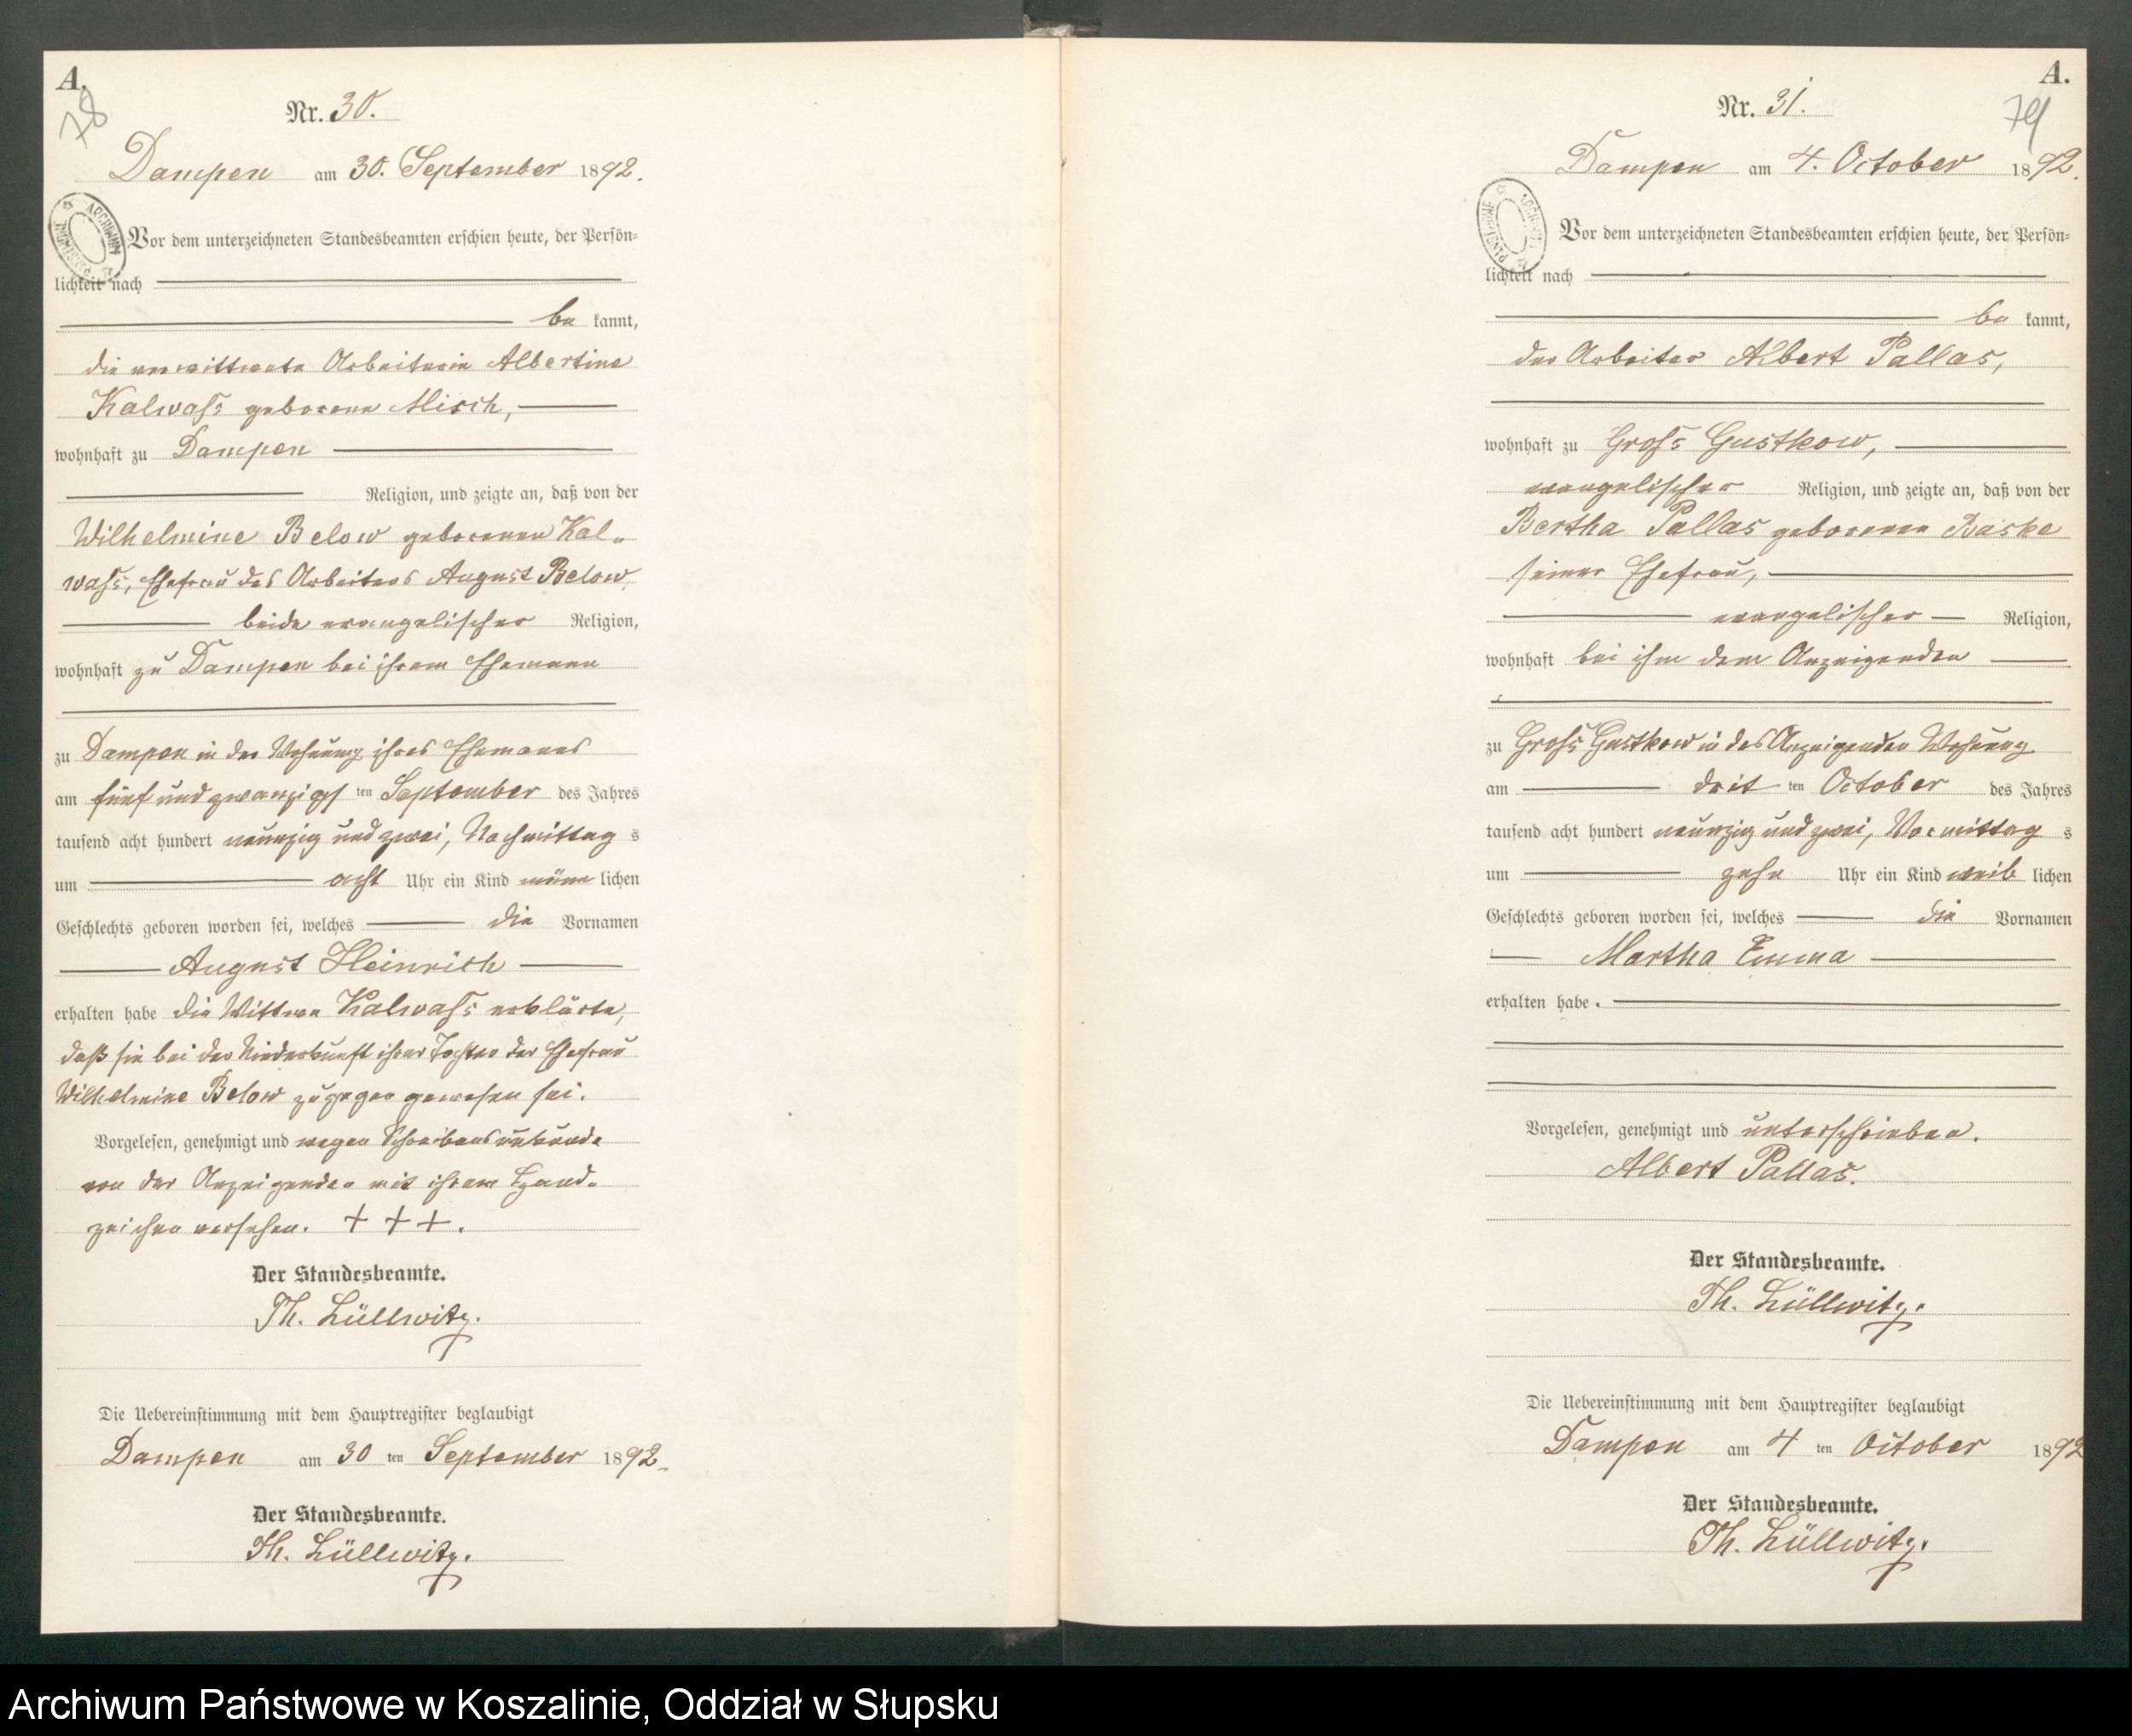 A.
78
Nr. 30.
Dampen am 30. September 1892.
ARCHIWUM PAŃSTWOWE
Vor dem unterzeichneten Standesbeamten erschien heute, der Persön-
lichkeit nach
be kannt,
die verwittwete Arbeiterin Albertine
Kalwaſs geborene Misch,
wohnhaft zu Dampen
Religion, und zeigte an, daß von der
Wilhelmine Below geborenen Kal-
waſs, Ehefrau des Arbeiters August Below,
beide evangelischer Religion,
wohnhaft zu Dampen bei ihrem Ehemann
zu Dampen in der Wohnung ihres Ehemanns
am fünf und zwanzigst ten September des Jahres
tausend acht hundert neunzig und zwei, Nachmittag s
um acht Uhr ein Kind männ lichen
Geschlechts geboren worden sei, welches die Vornamen
August Heinrich
erhalten habe die Wittwe Kalwaſs erklärte,
daß sie bei der Niederkunft ihrer Tochter der Ehefrau
Wilhelmine Below zugegen gewesen sei.
Vorgelesen, genehmigt und wegen Schreibensunkunde
von der Anzeigenden mit ihrem Hand-
zeichen versehen. + + +.
Der Standesbeamte.
Th. Lüllwitz.
Die Uebereinstimmung mit dem Hauptregister beglaubigt
Dampen am 30 ten September 1892.
Der Standesbeamte.
Th. Lüllwitz.
A.
79
Nr. 31.
Dampen am 4. October 1892.
ARCHIWUM PAŃSTWOWE
Vor dem unterzeichneten Standesbeamten erschien heute, der Persön-
lichkeit nach
be kannt,
der Arbeiter Albert Pallas,
wohnhaft zu Groſs Gustkow,
evangelischer Religion, und zeigte an, daß von der
Bertha Pallas geborenen Baske
seiner Ehefrau,
evangelischer Religion,
wohnhaft bei ihm dem Anzeigenden
zu Groſs Gustkow in des Anzeigenden Wohnung
am drit ten October des Jahres
tausend acht hundert neunzig und zwei, Vormittag s
um zehn Uhr ein Kind weib lichen
Geschlechts geboren worden sei, welches die Vornamen
Martha Emma
erhalten habe.
Vorgelesen, genehmigt und unterschrieben.
Albert Pallas.
Der Standesbeamte.
Th. Lüllwitz.
Die Uebereinstimmung mit dem Hauptregister beglaubigt
Dampen am 4 ten October 1892
Der Standesbeamte.
Th. Lüllwitz.
Archiwum Państwowe w Koszalinie, Oddział w Słupsku